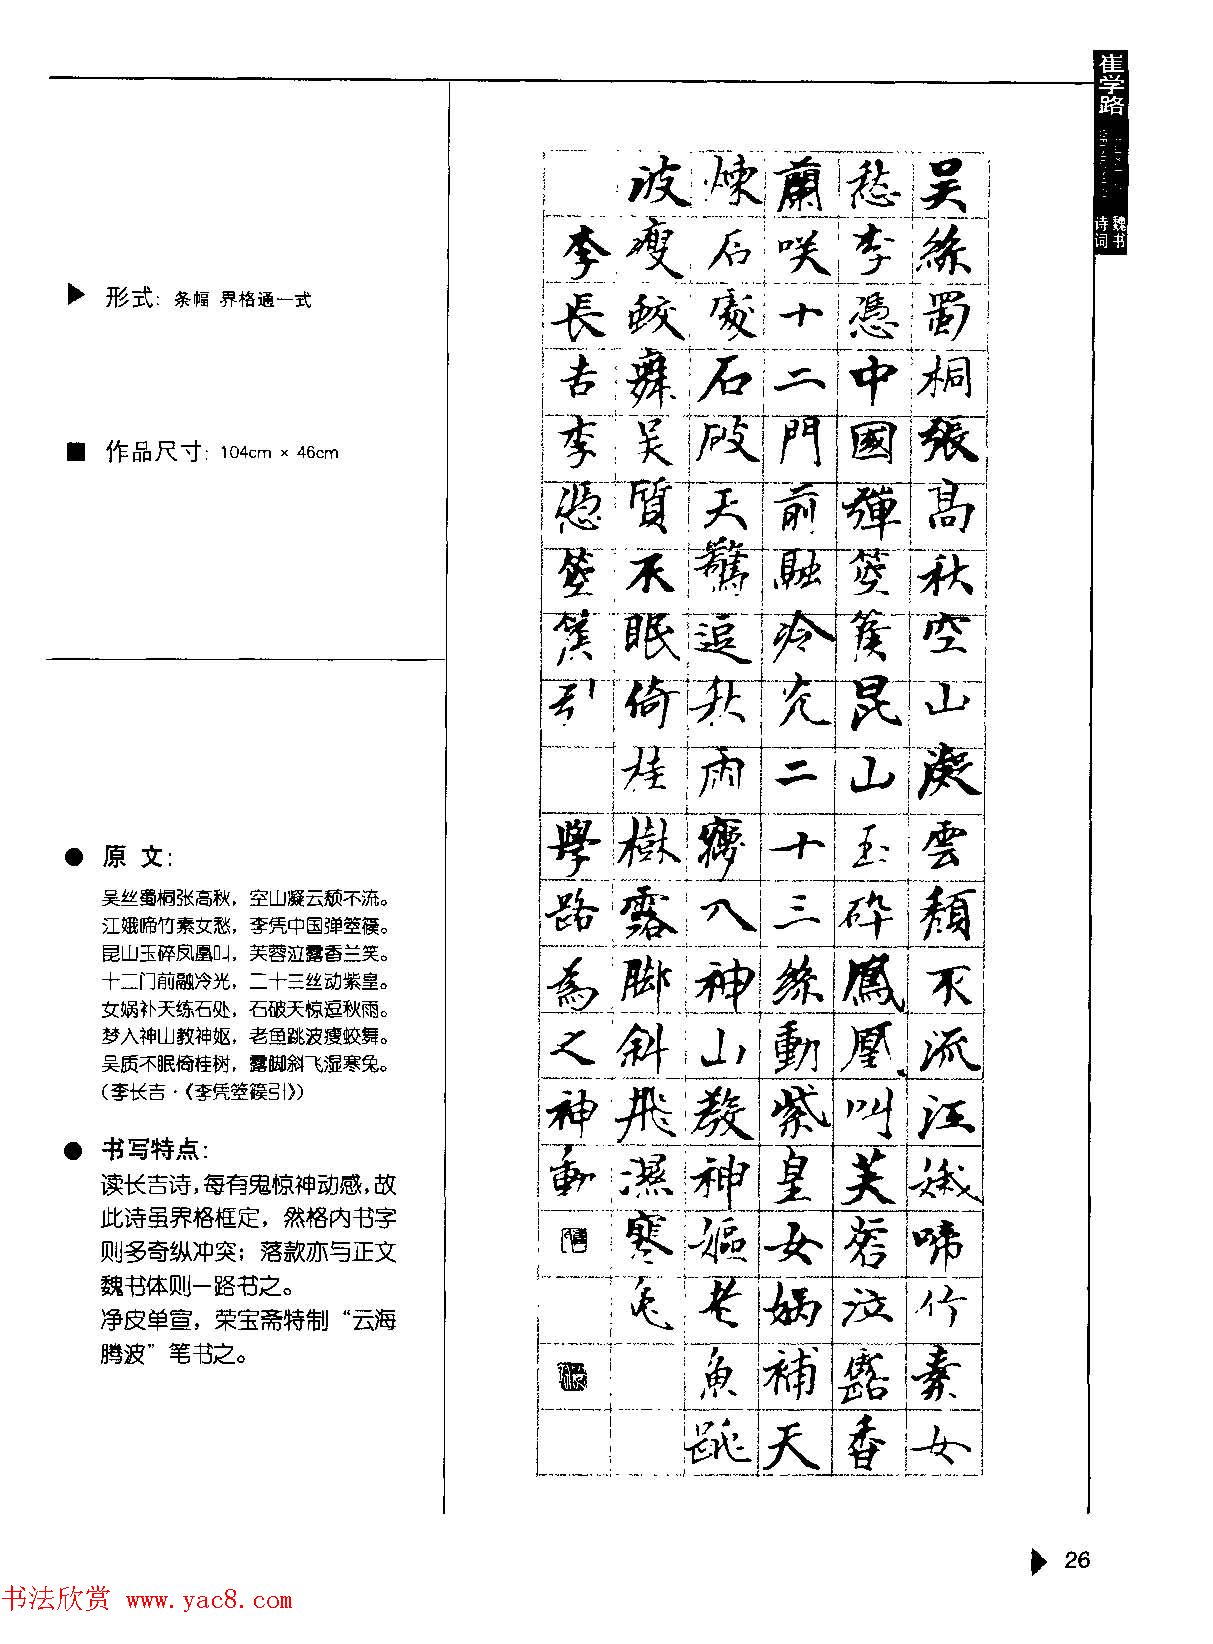 崔学路
魏书
诗词
▶ 形式: 条幅 界格通一式
■ 作品尺寸: 104cm × 46cm
● 原 文:
吴丝蜀桐张高秋，空山凝云颓不流。
江娥啼竹素女愁，李凭中国弹箜篌。
昆山玉碎凤凰叫，芙蓉泣露香兰笑。
十二门前融冷光，二十三丝动紫皇。
女娲补天练石处，石破天惊逗秋雨。
梦入神山教神妪，老鱼跳波瘦蛟舞。
吴质不眠倚桂树，露脚斜飞湿寒兔。
(李长吉·《李凭箜篌引》)
● 书写特点:
读长吉诗，每有鬼惊神动感，故
此诗虽界格框定，然格内书字
则多奇纵冲突；落款亦与正文
魏书体则一路书之。
净皮单宣，荣宝斋特制“云海
腾波”笔书之。
吴絲蜀桐張高秋空山凝雲頹不流江娥啼竹素女
愁李憑中國彈箜篌昆山玉碎鳳凰叫芙蓉泣露香
蘭咲十二門前融冷光二十三絲動紫皇女媧補天
煉石處石破天驚逗秋雨夢入神山教神嫗老魚跳
波瘦蛟舞吴質不眠倚桂樹露脚斜飛濕寒兔
李長吉李憑箜篌引 學路為之神動
▶ 26
书法欣赏 www.yac8.com